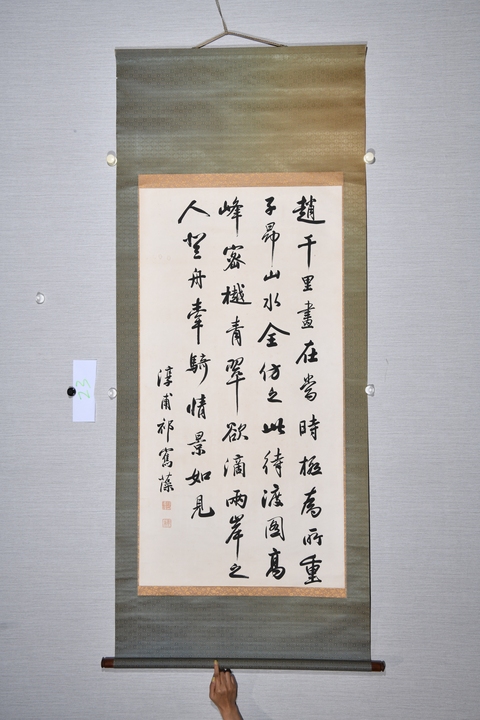 趙千里畫在當時極為所重
子昂山水全仿之此待渡圖高
峰密樾青翠欲滴兩岸之
人登舟牽騎情景如見
淳甫祁寯藻
23